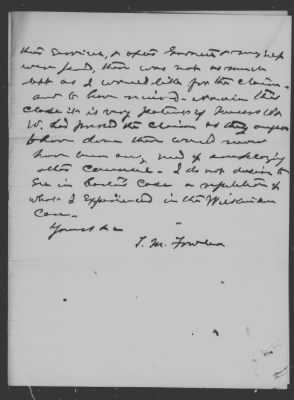 their services, & after Garnett &
were paid, there was not as much
left as I would like for the claim-
ant to have received. Again this
case is very
W. had pressed the claim as they
to have done there would never
have been any need of employing
other Counsel. I do not desire to
see in case a repetition of
what I experienced in the Wilkinson
Case.
Yours &c
T. M. Fowler